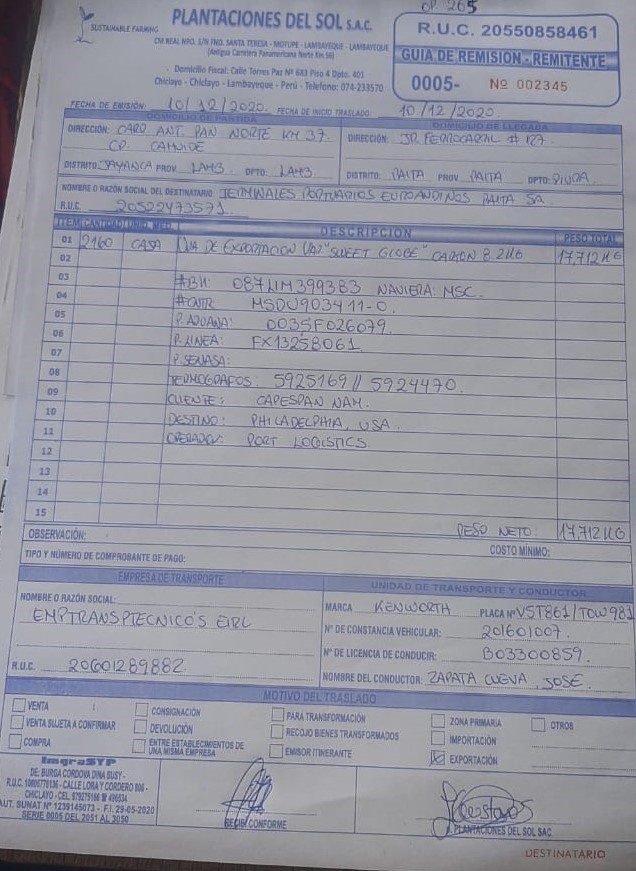 OP 265
PLANTACIONES DEL SOL S.A.C.
SUSTAINABLE FARMING
CM REAL NRO. S/N FND. SANTA TERESA - MOTUPE - LAMBAYEQUE - LAMBAYEQUE
(Antigua Carretera Panamericana Norte Km 56)
Domicilio Fiscal: Calle Torres Paz Nº 683 Piso 4 Dpto. 401
Chiclayo - Chiclayo - Lambayeque - Perú - Telefono: 074-233570
R.U.C. 20550858461
GUIA DE REMISION - REMITENTE
0005- Nº 002345
FECHA DE EMISIÓN: 10/12/2020. FECHA DE INICIO TRASLADO: 10/12/2020.
DOMICILIO DE PARTIDA DOMICILIO DE LLEGADA
DIRECCIÓN: CARR. ANT. PAN NORTE KM 37. DIRECCIÓN: JR. FERROCARRIL # 127
CP. CAHUIDE
DISTRITO: JAYANCA PROV. LAMB. DPTO: LAMB DISTRITO: PAITA PROV. PAITA DPTO: PIURA
NOMBRE O RAZÓN SOCIAL DEL DESTINATARIO: TERMINALES PORTUARIOS EUROANDINOS PAITA SA
R.U.C. 20522473571
ITEM CANTIDAD UNID. MED. DESCRIPCION PESO TOTAL
01 2160 CAJA UVA DE EXPORTACION VAR "SWEET GLOBE" CARTON 8.2KG 17,712 KG
02
03 #BK: 087LIM399383 NAVIERA: MSC.
04 #CNTR: MSDU903411-0.
05 P. ADUANA: 0035F026079.
06 P. LINEA: FX13258061
07 P. SENASA:
08 TERMOGRAFOS: 5925169 // 5924470.
09 CLIENTE: CAPESPAN NAM.
10 DESTINO: PHILADELPHIA, USA.
11 OPERADOR: PORT LOGISTICS.
12
13
14
15 PESO NETO: 17,712 KG
OBSERVACIÓN: COSTO MÍNIMO:
TIPO Y NÚMERO DE COMPROBANTE DE PAGO:
EMPRESA DE TRANSPORTE UNIDAD DE TRANSPORTE Y CONDUCTOR
NOMBRE O RAZÓN SOCIAL: MARCA KENWORTH PLACA Nº VST861/TOW981
EMPTRANSPTECNICO'S EIRL Nº DE CONSTANCIA VEHICULAR: 201601007.
Nº DE LICENCIA DE CONDUCIR: B03300859.
R.U.C. 20601289882 NOMBRE DEL CONDUCTOR: ZAPATA CUEVA, JOSE.
MOTIVO DEL TRASLADO
VENTA CONSIGNACIÓN PARA TRANSFORMACIÓN ZONA PRIMARIA OTROS
VENTA SUJETA A CONFIRMAR DEVOLUCIÓN RECOJO BIENES TRANSFORMADOS IMPORTACIÓN
COMPRA ENTRE ESTABLECIMIENTOS DE UNA MISMA EMPRESA EMISOR ITINERANTE EXPORTACIÓN
ImgraSYP
DE: BURGA CORDOVA DINA SUSY -
CALLE LORA Y CORDERO 806 -
AUT. SUNAT Nº 1239145073 - F.I. 29-05-2020
SERIE 0005 DEL 2051 AL 3050
RECIBÍ CONFORME
PLANTACIONES DEL SOL SAC
DESTINATARIO